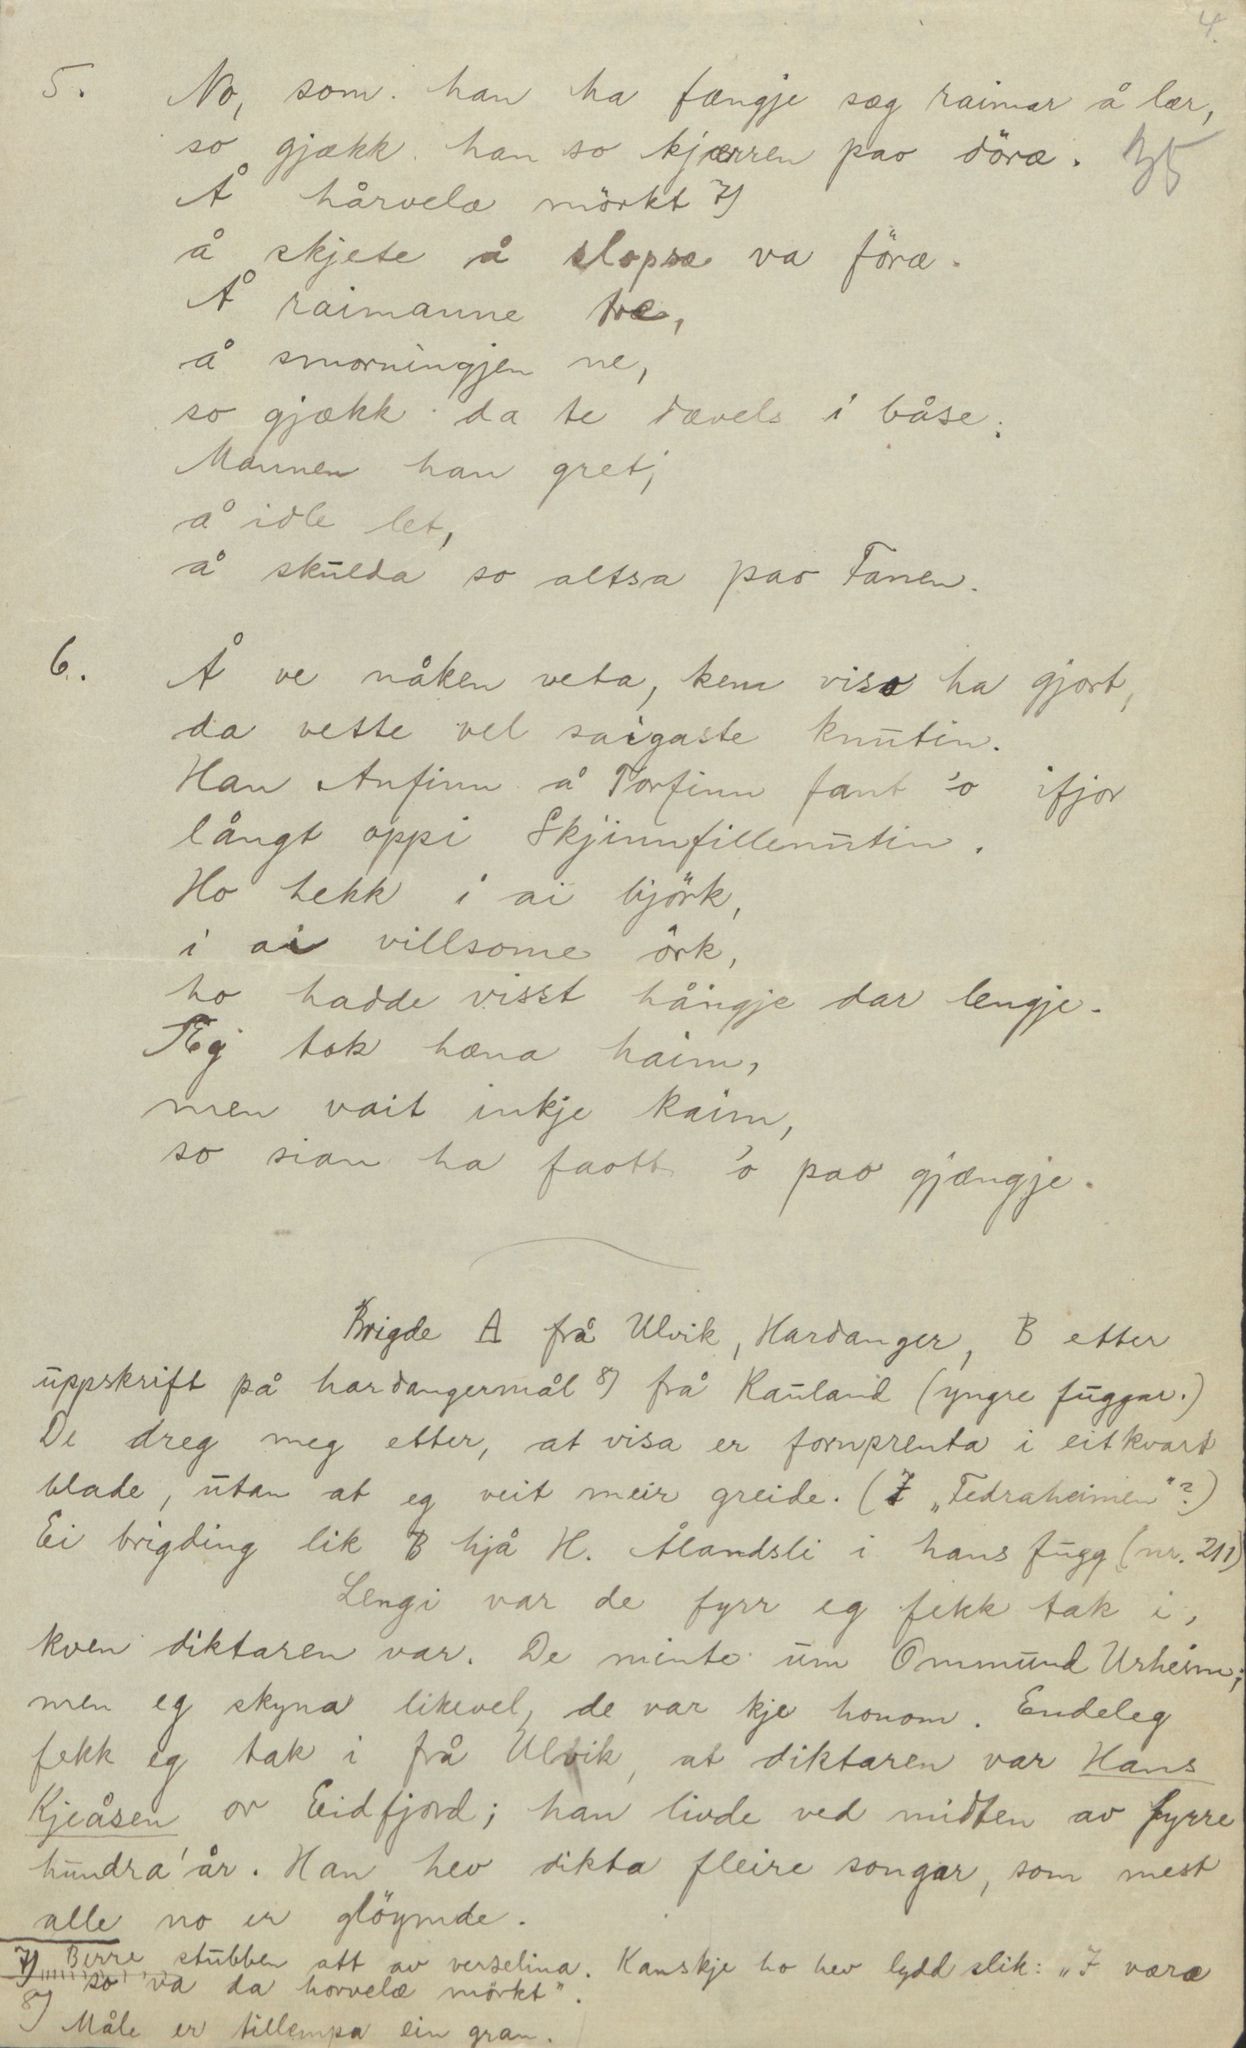 4.
5. No, som han ha fængje sæg raimar å lær,
so gjækk han so kjærren pao döræ. 35
Å hårvelæ mörkt 7)
å skjete å slopsæ va föræ.
Å raimanne tre,
å smorningjen ne,
so gjækk da te dævels i båse.
Mannen han gret;
å idle let,
å skulda so altsa pao Fanen.
6. Å ve nåken veta, kem viso ha gjort,
da vette vel saigaste knutin.
Han Anfinn å Torfinn fant 'o ifjor
långt oppi Skjinnfillenutin.
Ho hekk i ai björk,
i ai villsome örk,
ho hadde visst hångje dar lengje.
Æg tok hæna haim,
men vait inkje kaim,
so sian ha faott 'o pao gjængje.
Brigde A frå Ulvik, Hardanger, B etter
uppskrift på hardangermål 8) frå Rauland (yngre fuggar.)
De dreg meg etter, at visa er fornprenta i eitkvart
blade, utan at eg veit meir greide. (I „Fedraheimen"?)
Ei brigding lik B hjå H. Ålandsli i hans fugg (nr. 211)
Lengi var de fyrr eg fekk tak i,
kven diktaren var. De minte um Ommund Urheim;
men eg skyna likevel, de var kje honom. Endeleg
fekk eg tak i frå Ulvik, at diktaren var Hans
Kjeåsen or Eidfjord; han livde ved midten av fyrre
hundra'år. Han hev dikta fleire songar, som mest
alle no er glöymde.
7) Berre stubben att av verselina. Kanskje ho hev lydd slik: „I væræ
so va da horvelæ mörkt".
8) Måle er tillempa ein gran.